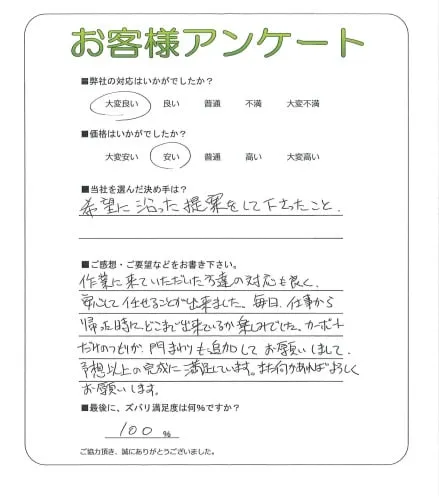 お客様アンケート
■弊社の対応はいかがでしたか?
大変良い 良い 普通 不満 大変不満
■価格はいかがでしたか?
大変安い 安い 普通 高い 大変高い
■当社を選んだ決め手は?
希望に沿った提案をして下さったこと.
■ご感想・ご要望などをお書き下さい。
作業に来ていただいた方達の対応も良く、
安心して任せることが出来ました。毎日、仕事から
帰った時に、どこまで出来ているか楽しみでした。カーポート
だけのつもりが、門まわりも追加してお願いしまして、
予想以上の完成に満足しています。また何かあればよろしく
お願いします。
■最後に、ズバリ満足度は何%ですか?
100 %
ご協力頂き、誠にありがとうございました。